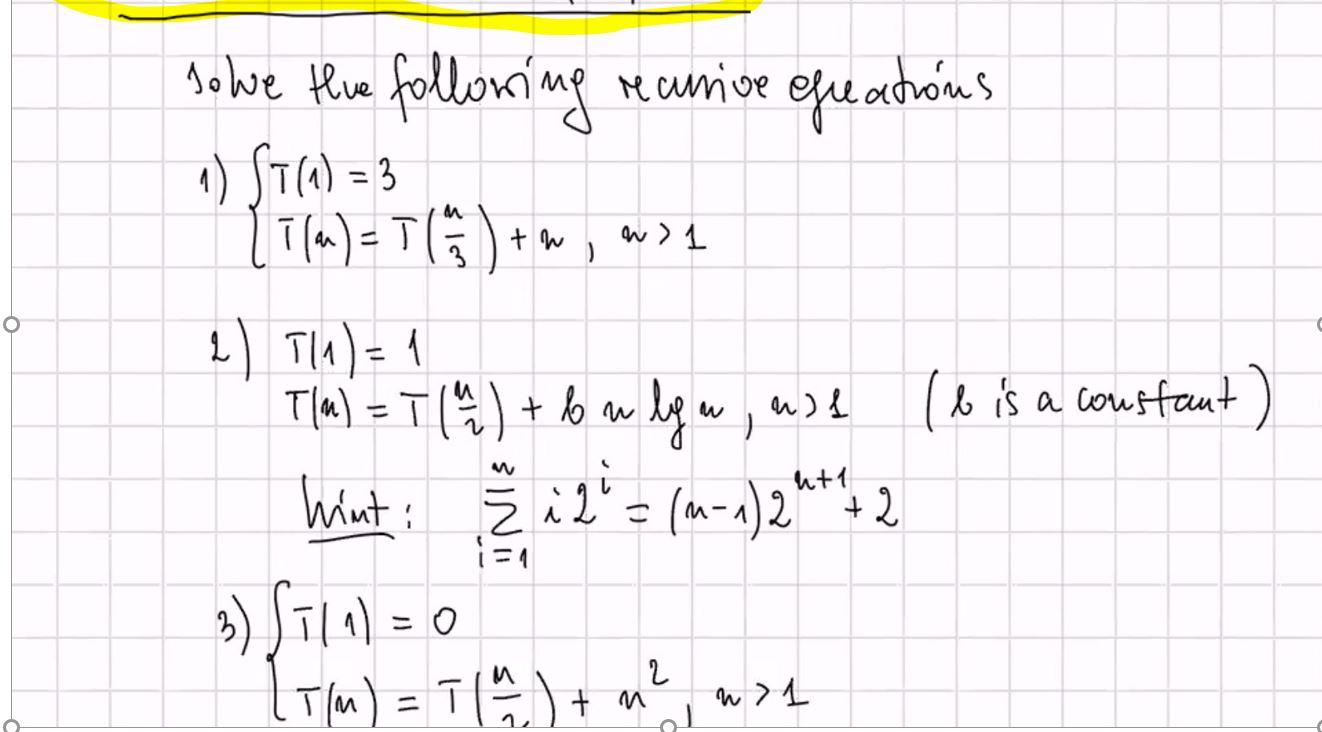 solve the following recursive equations
1) { T(1) = 3
T(n) = T(n/3) + n , n > 1
2) T(1) = 1
T(n) = T(n/2) + b n lg n , n > 1 (b is a constant)
hint: n∑i=1 i 2^i = (n-1) 2^(n+1) + 2
3) { T(1) = 0
T(n) = T(n/2) + n^2 , n > 1